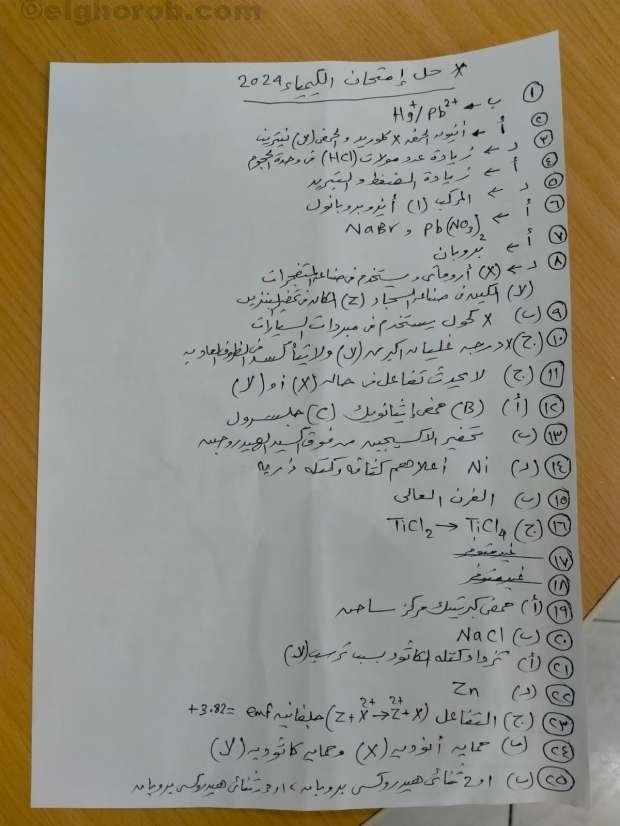 ©elghorob.com
* حل إمتحان الكيمياء 2024
١ ب ← Hg⁺/Pb²⁺
٢ أ ← أنيون الحمض X كلوريد و الحمض (ص) نيتريك
٣ د ← زيادة عدد مولات (HCl) فى وحدة الحجوم
٤ أ ← زيادة الضغط و التبريد
٥ د ← المركب (1) أيزوبروبانول
٦ أ ← Pb(NO₃)₂ و NaBr
٧ أ ← بروبان
٨ د ← (X) أروماتى ويستخدم فى صناعة المتفجرات
(Y) الكين فى صناعة السجاد (Z) الكان فى تحضير البنزين
٩ (ب) X كحول يستخدم فى مبردات السيارات
١٠ (ج) X درجه غليان اكبر من (Y) ولا يتأكسد فى الظروف العاديه
١١ (ج) لا يحدث تفاعل فى حاله (X) أو (Y)
١٢ (أ) (B) حمض إيثانويك (C) جلسرول
١٣ (ب) تحضير الاكسيجين من فوق أكسيد الهيدروجين
١٤ (د) Ni أعلاهم كثافه وكتله ذريه
١٥ (ب) الفرن العالى
١٦ (ج) TiCl₂ → TiCl₄
١٧ غير متوفر
١٨ غير متوفر
١٩ (أ) حمض كبريتيك مركز ساخن
٢٠ (ب) NaCl
٢١ (أ) تزداد كتله الكاثود بسبب ترسب (Y)
٢٢ (د) Zn
٢٣ (ج) التفاعل (Z+X²⁺→Z²⁺+X) جلفانيه emf = +3.82
٢٤ (ب) حمايه أنوديه (X) وحمايه كاثوديه (Y)
٢٥ (ب) 1و2 ثنائى هيدروكسى بروبان ، 1و3 ثنائى هيدروكسى بروبان